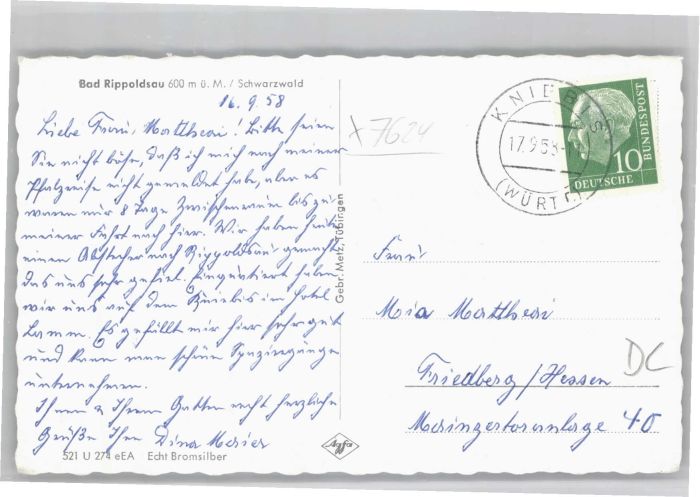 Bad Rippoldsau 600 m ü. M. / Schwarzwald
16.9.58
Liebe Frau Matthesi! Bitte seien
Sie nicht böse, daß ich mich nach meiner
Pfalzreise nicht gemeldet habe, aber es
waren nur 8 Tage Zwischenraum bis zu
meiner Fahrt nach hier. Wir haben heute
einen Abstecher nach Rippoldsau gemacht
das uns sehr gefiel. Einquartiert haben
wir uns auf dem Kniebis im Hotel
Lamm. Es gefällt mir hier sehr gut
und kann man schöne Spaziergänge
unternehmen.
Ihnen u Ihrem Gatten recht herzliche
Grüße Ihre Dina Maier
521 U 274 eEA Echt Bromsilber
Gebr. Metz, Tübingen
Agfa
+7624
KNIEBIS
17.9.58
(WÜRTT.)
10
DEUTSCHE
BUNDESPOST
Frau
Mia Matthesi
DC
Friedberg/Hessen
Mainzertoranlage 40